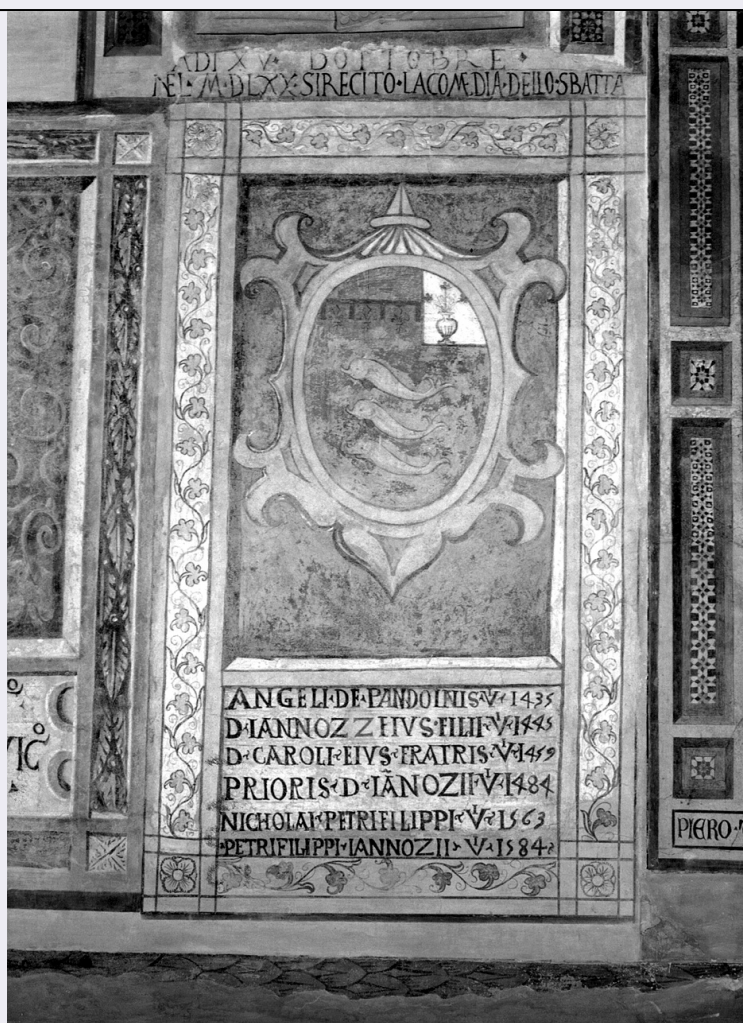 ADI XV DOTTOBRE
NEL·M·DLXX·SIRECITO·LACOMEDIA·DELLO·SBATTA
ANGELI·DE·PANDOINIS·V·1435
D·IANNOZZ EIVS·FILII·V·1445
D·CAROLI·EIVS·FRATRIS·V·1459
PRIORIS·D·IĀNOZII·V·1484
NICHOLAI·PETRIFILIPPI·V·1563
·PETRIFILIPPI·IANNOZII·V·1584·
PIERO·